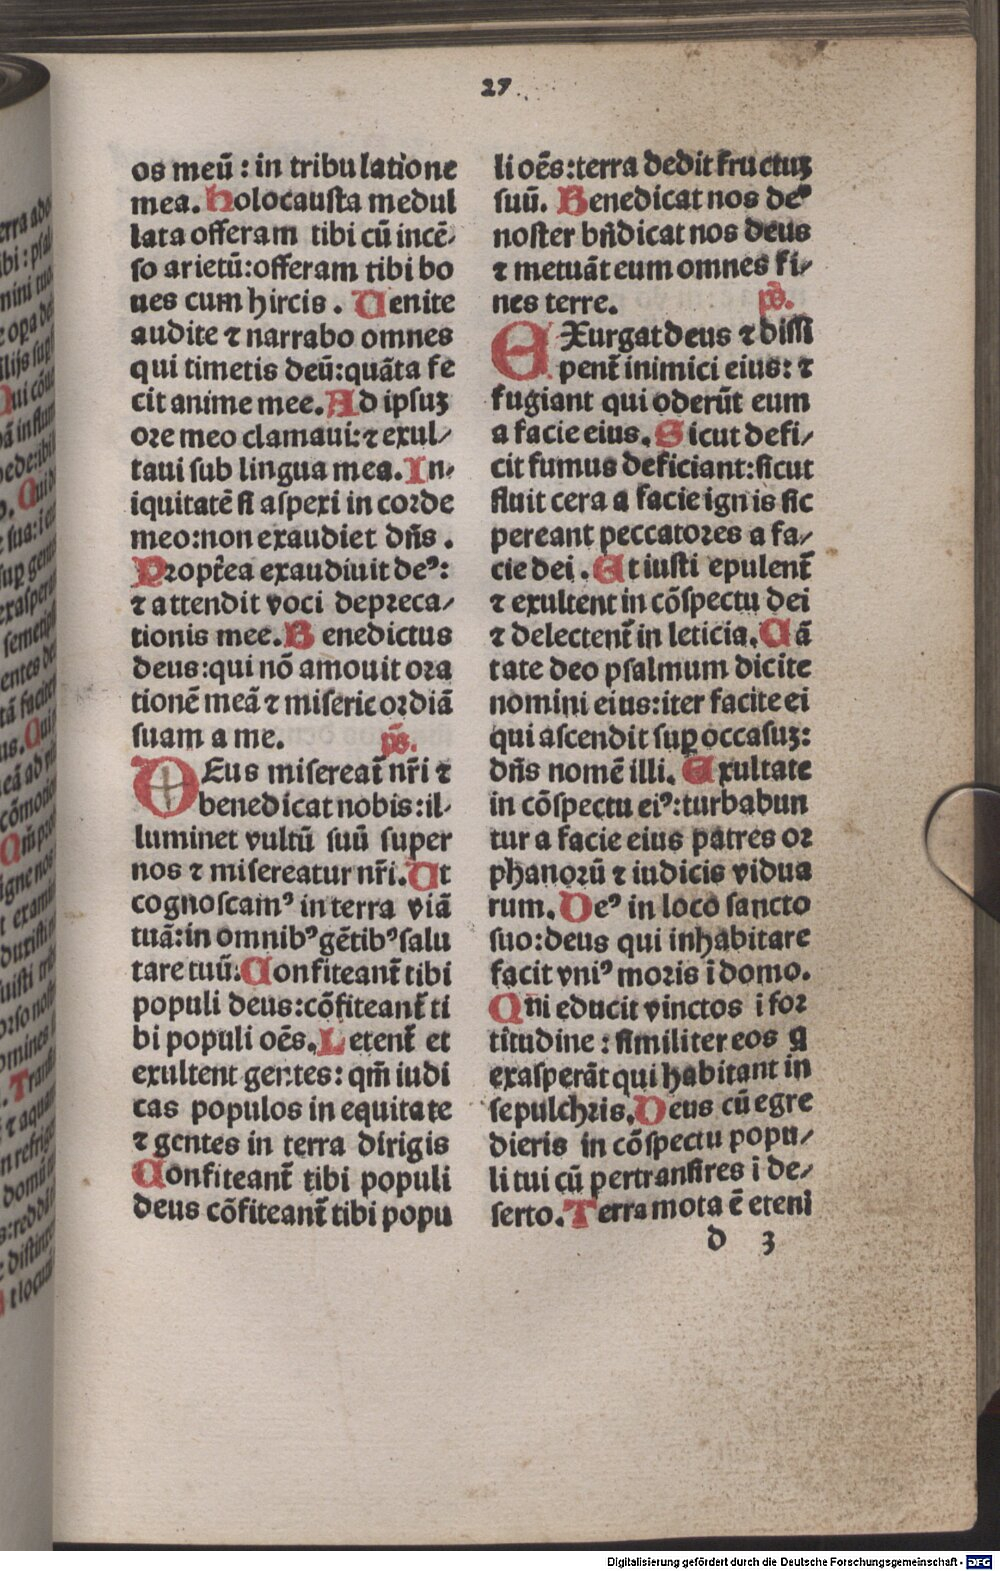 27
os meū : in tribulatione
mea. Holocausta medul
lata offeram tibi cū incē⸗
so arietū:offeram tibi bo
ues cum hircis . Uenite
audite ⁊ narrabo omnes
qui timetis deū:quāta fe
cit anime mee. Ad ipsuꝫ
ore meo clamaui:⁊ exul⸗
taui sub lingua mea. In⸗
iquitatē si aspexi in corde
meo:non exaudiet dn̄s .
Propt̄ea exaudiuit deꝰ:
⁊ attendit voci depreca⸗
tionis mee. Benedictus
deus:qui nō amouit ora
tionē meā ⁊ misericordiā
suam a me. ps̄.
DEus misereat̄ nr̄i ⁊
benedicat nobis:il⸗
luminet vultū suū super
nos ⁊ misereatur nr̄i. Ut
cognoscamꝰ in terra viā
tuā:in omnibꝰ gētibꝰ salu
tare tuū. Confiteant̄ tibi
populi deus:cōfiteant̄ ti
bi populi oēs. Letent̄ et
exultent gentes: qm̄ iudi
cas populos in equitate
⁊ gentes in terra dirigis
Confiteant̄ tibi populi
deus cōfiteant̄ tibi popu
li oēs:terra dedit fructuꝫ
suū. Benedicat nos deꝰ
noster bn̄dicat nos deus
⁊ metuāt eum omnes fi⸗
nes terre. ps̄.
EXurgat deus ⁊ dissi
pent̄ inimici eius: ⁊
fugiant qui oderūt eum
a facie eius. Sicut defi⸗
cit fumus deficiant:sicut
fluit cera a facie ignis sic
pereant peccatores a fa⸗
cie dei . Et iusti epulent̄
⁊ exultent in cōspectu dei
⁊ delectent̄ in leticia. Cā
tate deo psalmum dicite
nomini eius:iter facite ei
qui ascendit suꝑ occasuꝫ:
dn̄s nomē illi. Exultate
in cōspectu eiꝰ:turbabun
tur a facie eius patres or
phanorū ⁊ iudicis vidua
rum. Deꝰ in loco sancto
suo:deus qui inhabitare
facit vniꝰ moris i domo.
Qui educit vinctos i for
titudine : similiter eos q̄
exasperāt qui habitant in
sepulchris. Deus cū egre
dieris in cōspectu popu⸗
li tui cū pertransires i de⸗
serto. Terra mota ē eteni
d 3
Digitalisierung gefördert durch die Deutsche Forschungsgemeinschaft - DFG